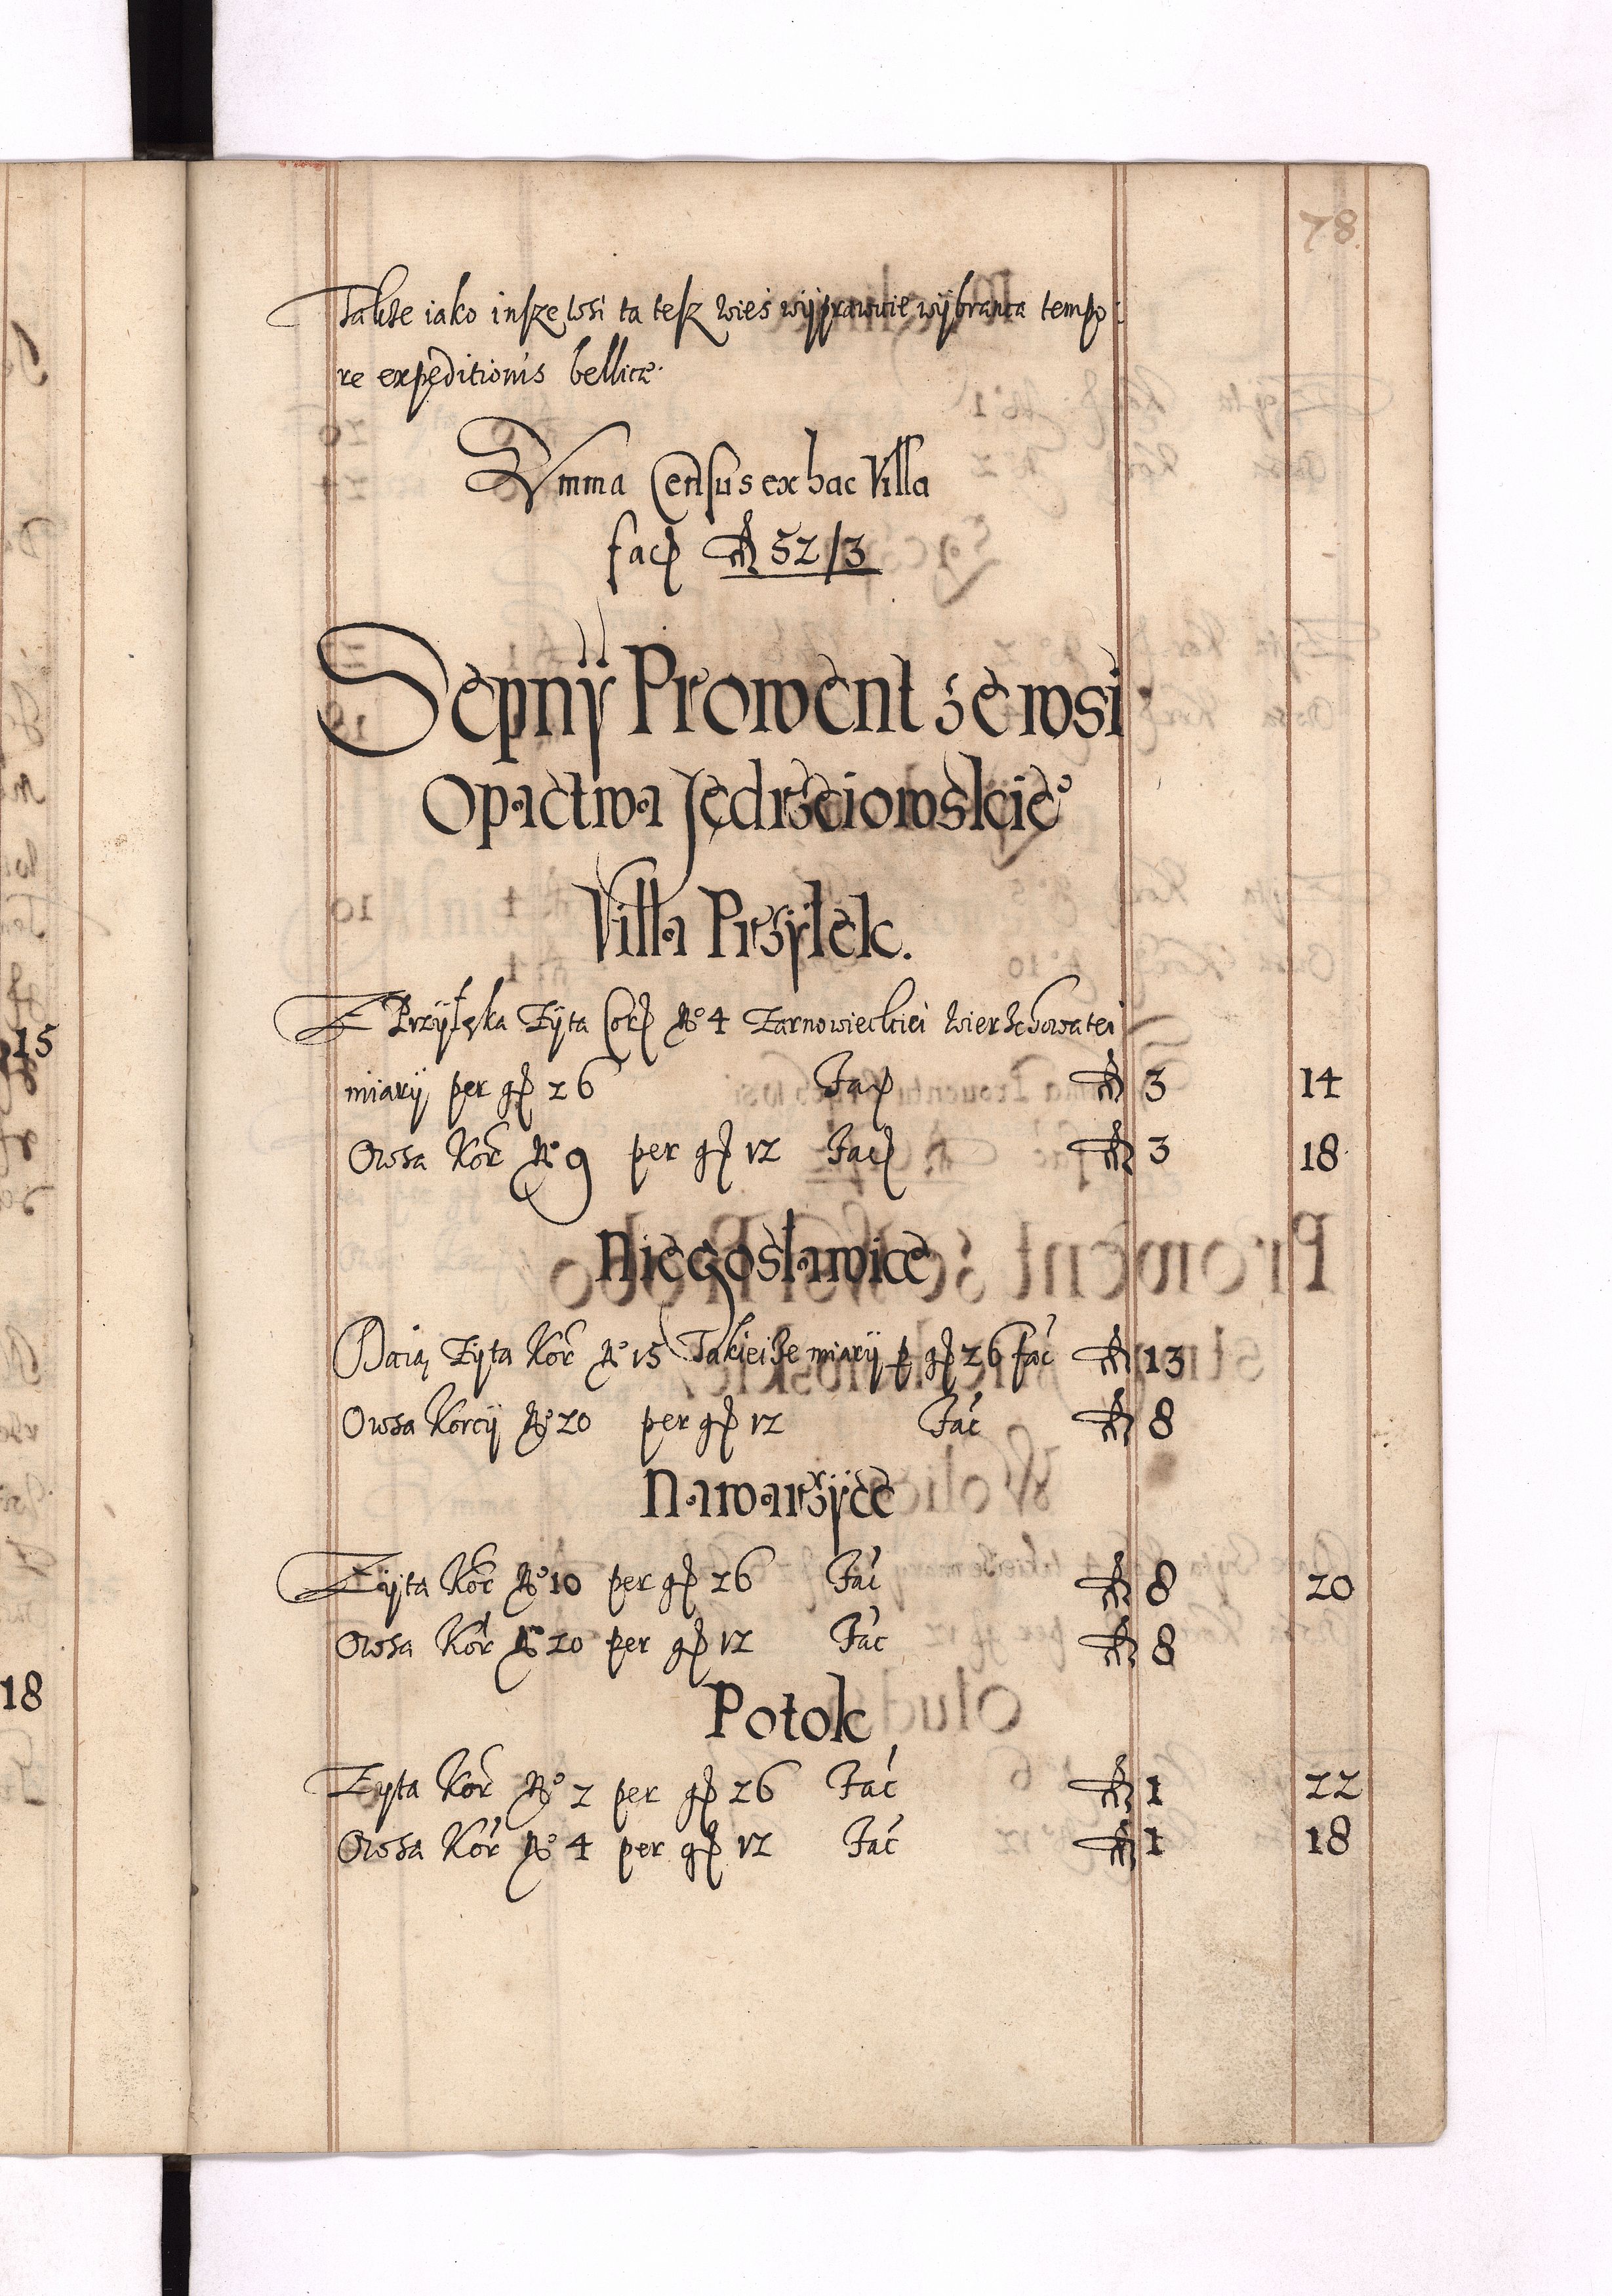 78.
Takze iako insze wsi ta tesz wieś wÿprawuie wÿbranca tempo:
re expeditionis bellicæ.
Summa Census ex hac Villa
facꝭ ₼ 52/3
Sepnÿ Prowent ze wsi
Opactwa Jędrzeiowskieº
Villa Przÿłek.
Z Przÿłęka Zÿta Corꝭ Nº 4 Zarnowieckiei wierzchowatei
miarÿ per gꝭ 26 Facꝭ ₼ 3 14
Owsa Kor Nº 9 per gꝭ 12 Facꝭ ₼ 3 18
Niegosławice
Daią Zÿta Kor Nº 15 Takieisze miarÿ ꝑ gꝭ 26 fac ₼ 13
Owsa Korcÿ Nº 20 per gꝭ 12 Fac ₼ 8
Nawarzÿce
Zÿta Kor Nº 10 per gꝭ 26 Fac ₼ 8 20
Owsa Kor Nº 20 per gꝭ 12 Fac ₼ 8
Potok
Zyta Kor Nº 2 per gꝭ 26 Fac ₼ 1 22
Owsa Kor Nº 4 per gꝭ 12 Fac ₼ 1 18
15
18